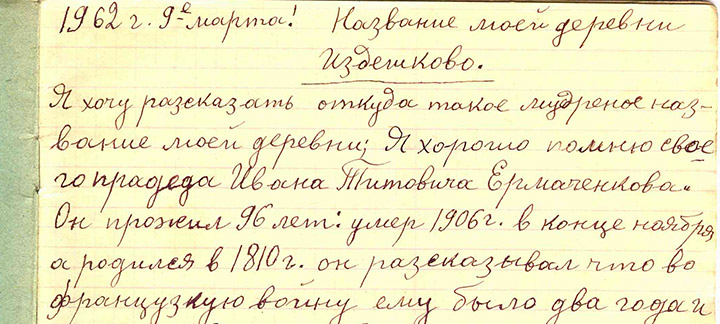 1962 г. 9е марта! Название моей деревни
Издешково.
Я хочу рассказать откуда такое мудреное наз-
вание моей деревни; Я хорошо помню свое-
го прадеда Ивана Титовича Ермаченкова.
Он прожил 96 лет: умер 1906 г. в конце ноября
а родился в 1810 г. он рассказывал что во
французкую войну ему было два года и